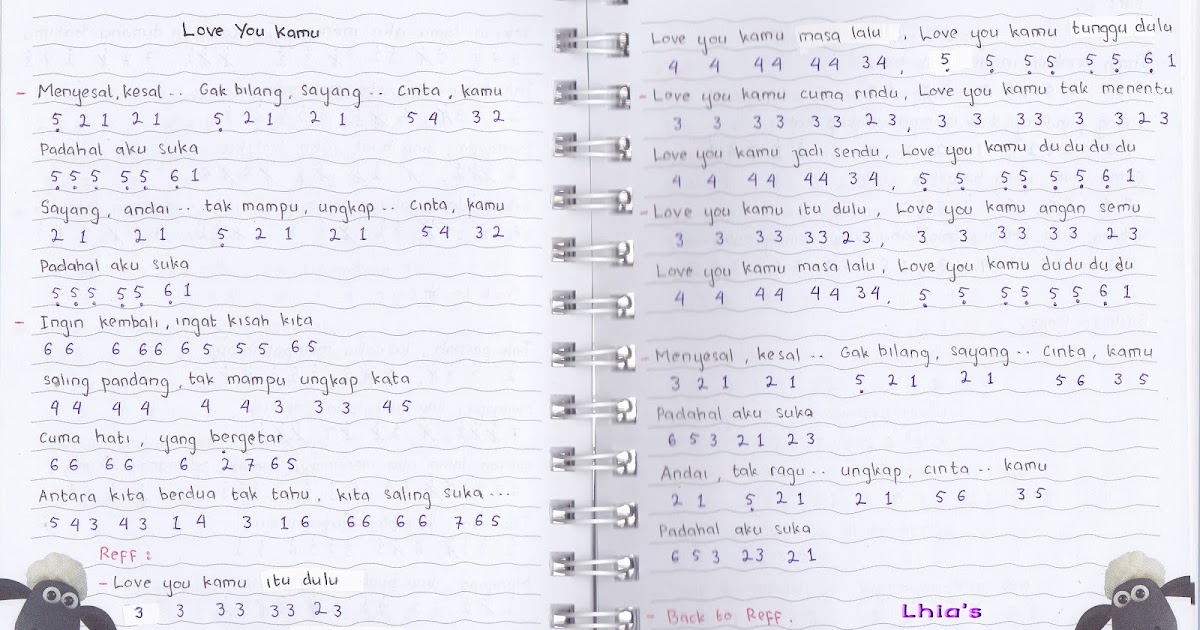 Love You Kamu
- Menyesal, kesal.. Gak bilang, sayang.. cinta, kamu
5̣ 2 1 2 1 5̣ 2 1 2 1 5 4 3 2
Padahal aku suka
5̣ 5̣ 5̣ 5̣ 5̣ 6̣ 1
Sayang, andai.. tak mampu, ungkap.. cinta, kamu
2 1 2 1 5̣ 2 1 2 1 5 4 3 2
Padahal aku suka
5̣ 5̣ 5̣ 5̣ 5̣ 6̣ 1
- Ingin kembali, ingat kisah kita
6 6 6 6 6 6 5 5 5 6 5
saling pandang, tak mampu ungkap kata
4 4 4 4 4 4 3 3 3 4 5
cuma hati, yang bergetar
6 6 6 6 6 2̇ 7 6 5
Antara kita berdua tak tahu, kita saling suka...
5 4 3 4 3 1 4 3 1 6 6 6 6 6 7 6 5
Reff :
- Love you kamu itu dulu
3 3 3 3 3 3 2 3
Love you kamu masa lalu, Love you kamu tunggu dulu
4 4 4 4 4 4 3 4, 5̣ 5̣ 5̣ 5̣ 5̣ 5̣ 6̣ 1
- Love you kamu cuma rindu, Love you kamu tak menentu
3 3 3 3 3 3 2 3, 3 3 3 3 3 3 2 3
Love you kamu jadi sendu, Love you kamu du du du du
4 4 4 4 4 4 3 4, 5̣ 5̣ 5̣ 5̣ 5̣ 5̣ 6̣ 1
- Love you kamu itu dulu, Love you kamu angan semu
3 3 3 3 3 3 2 3, 3 3 3 3 3 3 2 3
Love you kamu masa lalu, Love you kamu du du du du
4 4 4 4 4 4 3 4, 5̣ 5̣ 5̣ 5̣ 5̣ 5̣ 6̣ 1
- Menyesal, kesal.. Gak bilang, sayang.. cinta, kamu
3 2 1 2 1 5̣ 2 1 2 1 5 6 3 5
Padahal aku suka
6 5 3 2 1 2 3
Andai, tak ragu.. ungkap, cinta.. kamu
2 1 5̣ 2 1 2 1 5 6 3 5
Padahal aku suka
6 5 3 2 3 2 1
- Back to Reff.
Lhia's